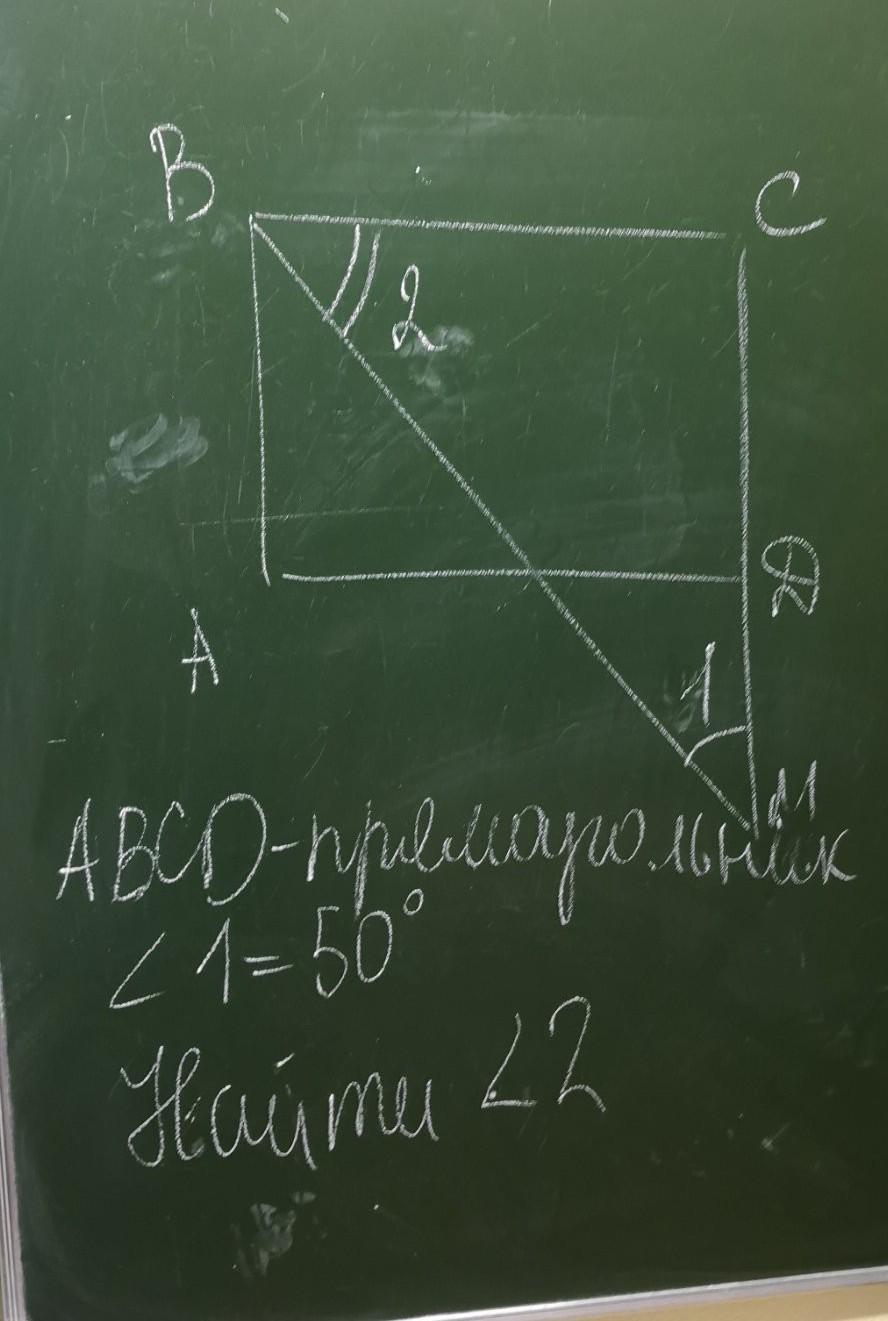 B
C
2
D
A
1
M
ABCD-прямоугольник
∠1=50°
Найти ∠2